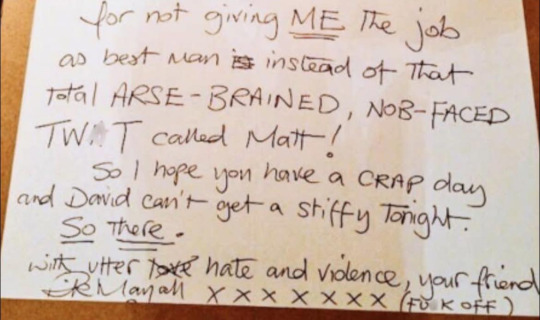 for not giving ME the job
as best man is instead of that
total ARSE-BRAINED, NOB-FACED
TW T called Matt!
So I hope you have a CRAP day
and David can't get a stiffy tonight.
So there.
with utter love hate and violence, your friend
Rik Mayall x x x x x x x (FU K OFF)